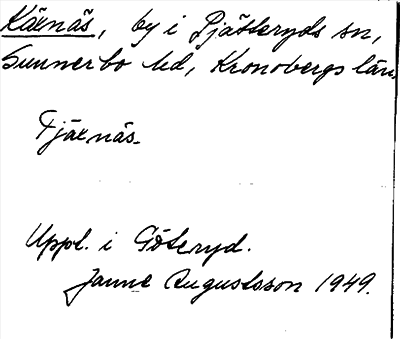 Kärnäs, by i Pjätteryds sn,
Sunnerbo hd, Kronobergs län.
Tjärnäs.
Uppl. i Göteryd.
Janne Augustsson 1949.